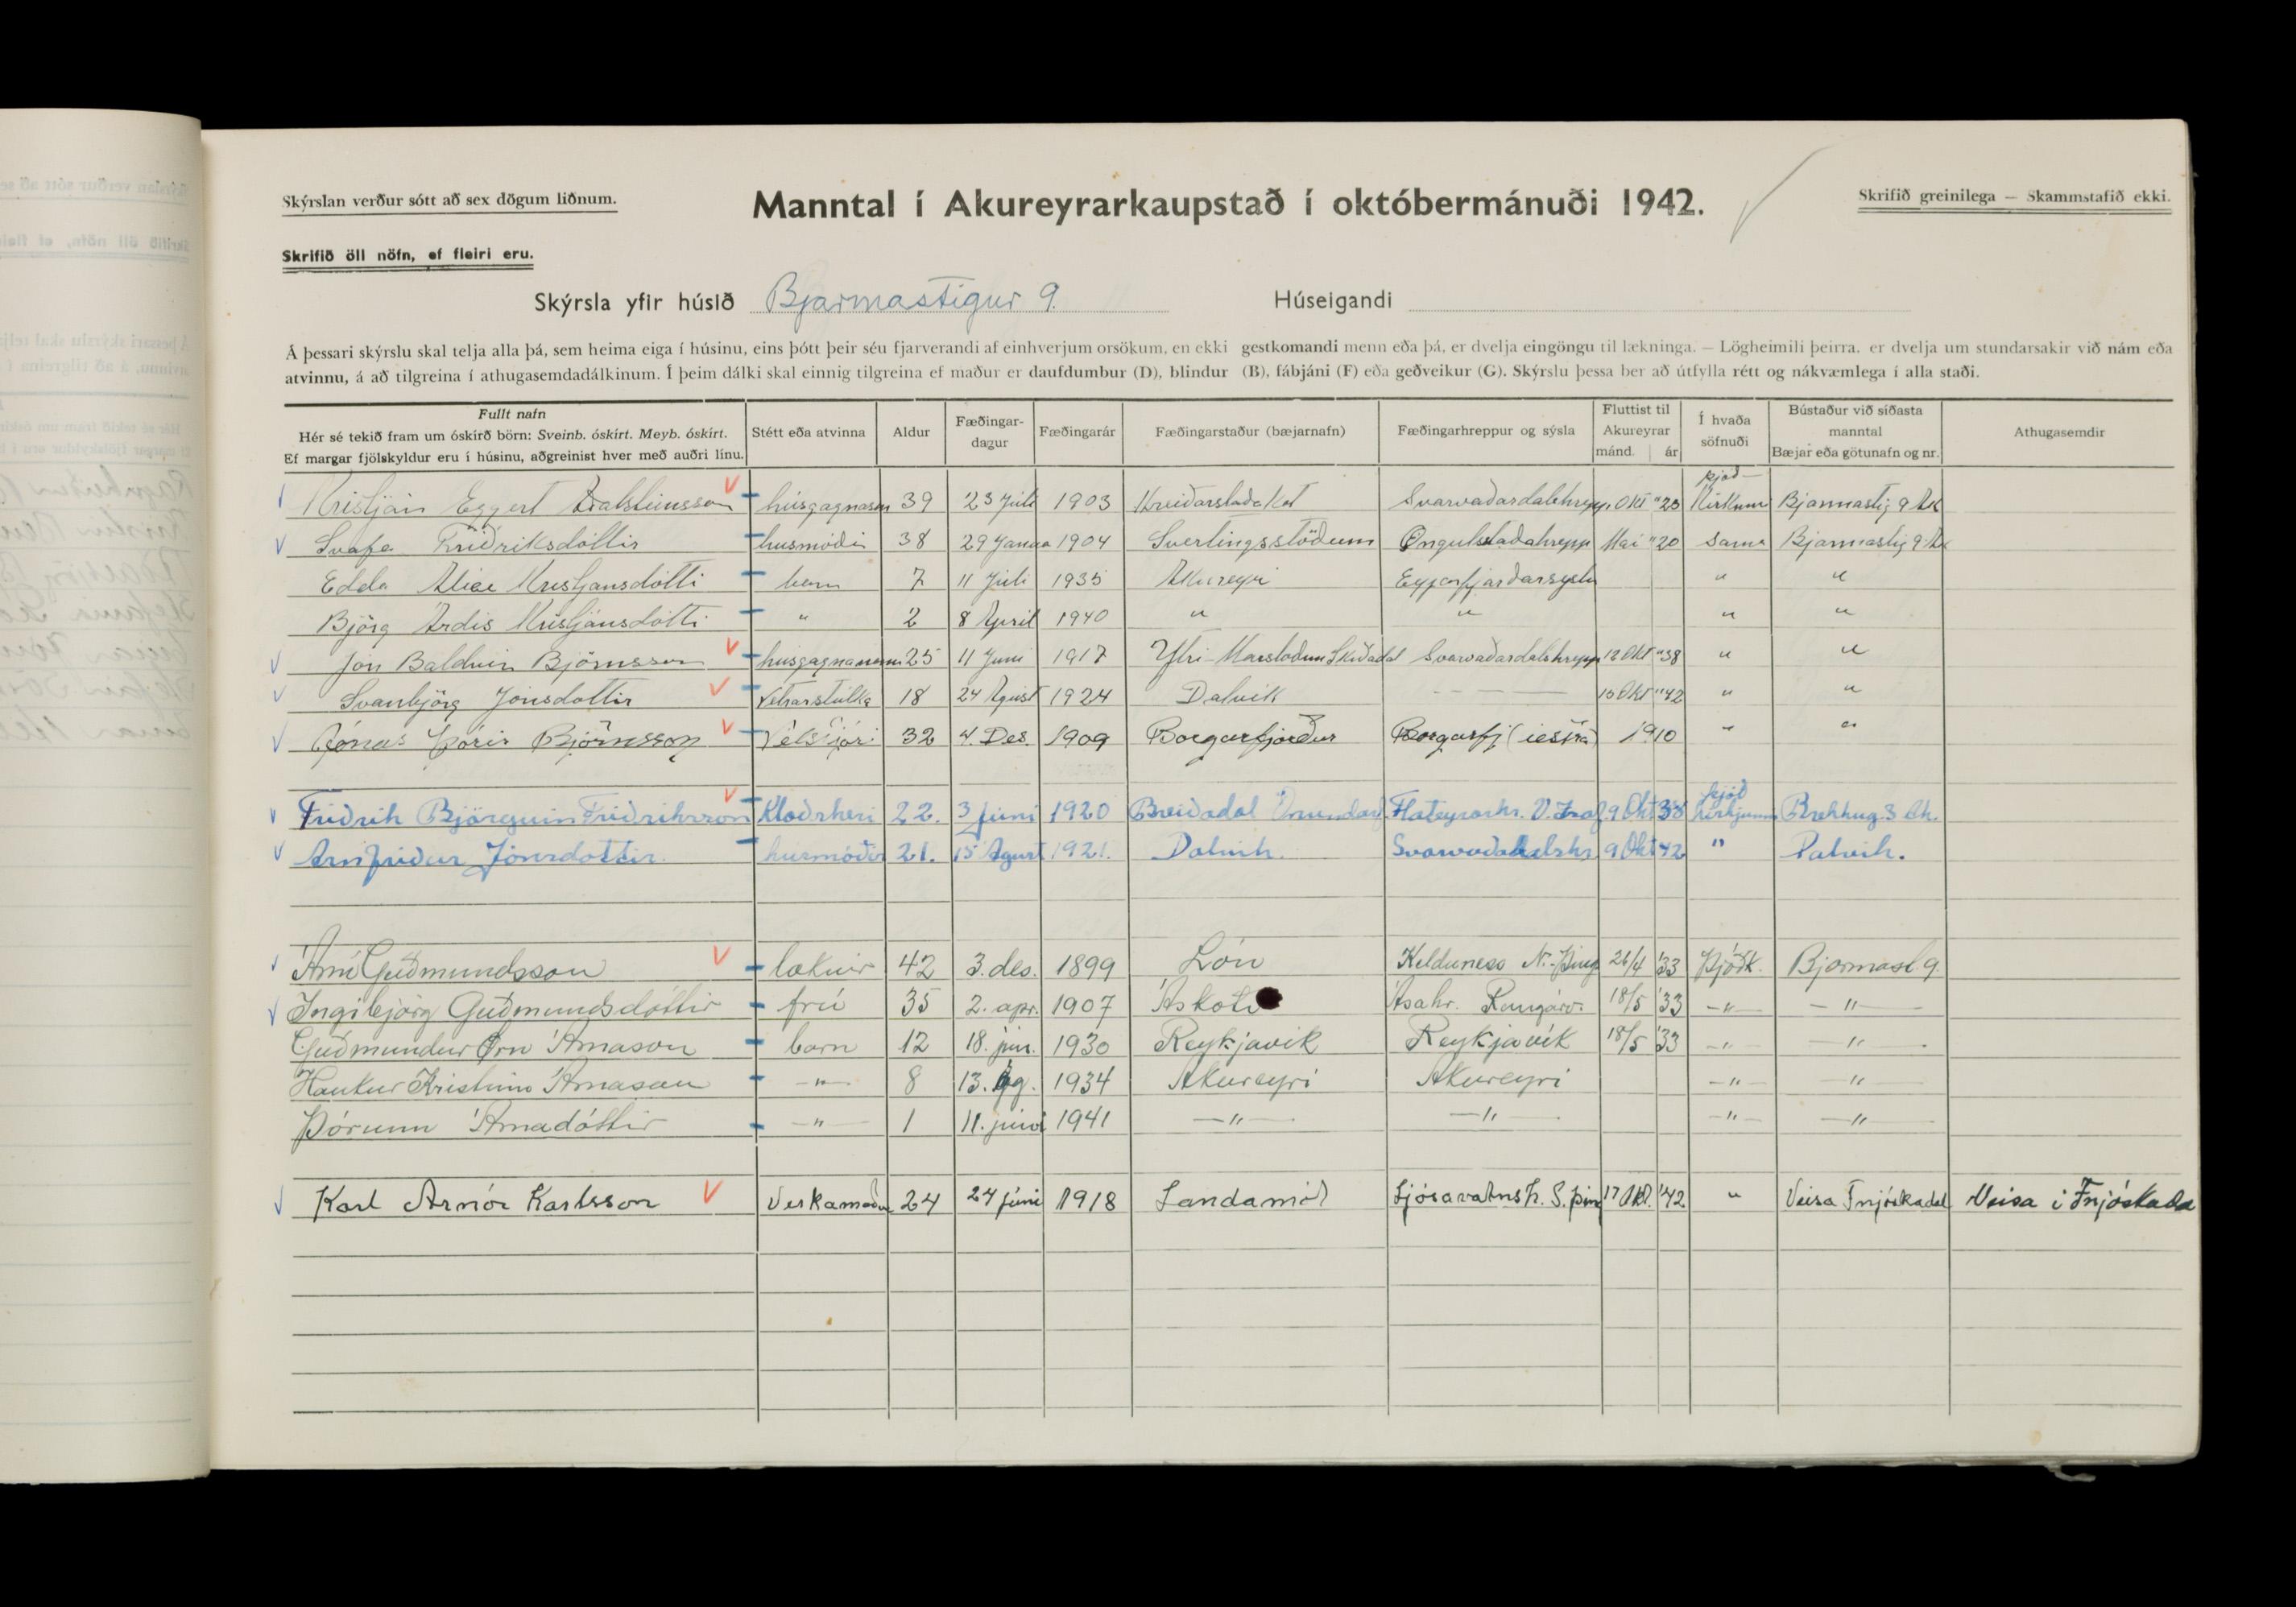 Skýrslan verður sótt að sex dögum liðnum.
Manntal í Akureyrarkaupstað í októbermánuði 1942.
Skrifið greinilega — Skammstafið ekki.
Skrifið öll nöfn, ef fleiri eru.
Skýrsla yfir húsið Bjarmastígur 9. Húseigandi
Á þessari skýrslu skal telja alla þá, sem heima eiga í húsinu, eins þótt þeir séu fjarverandi af einhverjum orsökum, en ekki gestkomandi menn eða þá, er dvelja eingöngu til lækninga. — Lögheimili þeirra, er dvelja um stundarsakir við nám eða
atvinnu, á að tilgreina í athugasemdadálkinum. Í þeim dálki skal einnig tilgreina ef maður er daufdumbur (D), blindur (B), fábjáni (F) eða geðveikur (G). Skýrslu þessa ber að útfylla rétt og nákvæmlega í alla staði.
Fullt nafn
Hér sé tekið fram um óskírð börn: Sveinb. óskírt. Meyb. óskírt.
Ef margar fjölskyldur eru í húsinu, aðgreinist hver með auðri línu.
Stétt eða atvinna
Aldur
Fæðingar-
dagur
Fæðingarár
Fæðingarstaður (bæjarnafn)
Fæðingarhreppur og sýsla
Fluttist til
Akureyrar
mánd. ár
Í hvaða
söfnuði
Bústaður við síðasta
manntal
Bæjar eða götunafn og nr.
Athugasemdir
þjóð-
Kristján Eggert 39 23 Júlí 1903 Okt "23 Bjarmastíg 9 Ak
Svafa Friðriksdóttir husmóðir 38 29 Janua 1904 Sverlingsstöðum Öngulstaðahrepp Mai "20 Sama Bjarmastíg 9 Ak
Edda Alice Kristjansdótti barn 7 11 Júlí 1935 Akureyri Eyjafjarðarsyslu " "
Björg Árdis Kristjánsdótti " 2 8 April 1940 " " " "
Jón Baldvin Björnsson husgagnanem 25 11 Juni 1917 Ytri-Marstoðum Skiðadal Svarvaðardalshrepp 12 Okt "38 " "
Svanbjörg Jónsdottir Vetrarstúlka 18 24 Agúst 1924 Dalvik - - - - 15 Okt "42 " "
Jónas Þórir Björnsson Vélstjóri 32 4. Des. 1909 Borgarfjörður Borgarfj 1910 " "
þjóð
Friðrik Björgvin Friðriksson Klæðskeri 22. 3 Júni 1920 Breiðadal Önundarf Flateyrarhr. V. Ísaf 9 Okt 38 kirkjunni Brekkug. 3 Ak.
Arnfriður Jónsdottir husmóðir 21. 15 Agust 1921. Dalvik. Svarvaðadalshr 9 Okt 42 " Dalvik.
Árni Guðmundsson læknir 42 3. des. 1899 Lón Kelduness N.-Þing 26/4 '33 Þjóðk. Bjarmast. 9.
Ingibjörg Guðmundsdóttir frú 35 2. apr. 1907 Áskoti Ásahr. Rangárv. 18/5 '33 —"— —"—
Guðmundur Örn Árnason barn 12 18. jún. 1930 Reykjavík Reykjavík 18/5 '33 —"— —"—
Haukur Kristinn Árnason —"— 8 13. ág. 1934 Akureyri Akureyri —"— —"—
Þórunn Árnadóttir —"— 1 11. júní 1941 —"— —"— —"— —"—
Karl Arnór Karlsson Verkamaður 24 24 júni 1918 Landamót Ljósavatnsh. S. þing 17 Okt. '42 " Veisa Fnjóskadal Veisa í Fnjóskada